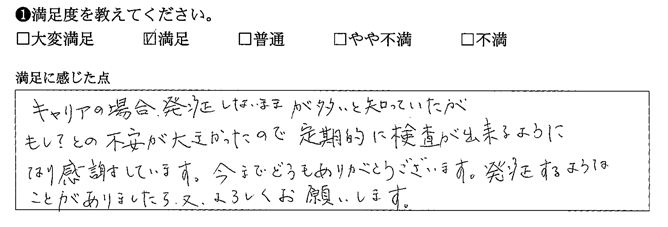 ❶満足度を教えてください。
□大変満足 ☑満足 □普通 □やや不満 □不満
満足に感じた点
キャリアの場合、発症しないままが多いと知っていたが
もしてとの不安が大きかったので定期的に検査が出来るように
なり感謝しています。今までどうもありがとうございます。発症するような
ことがありましたら、又、よろしくお願いします。